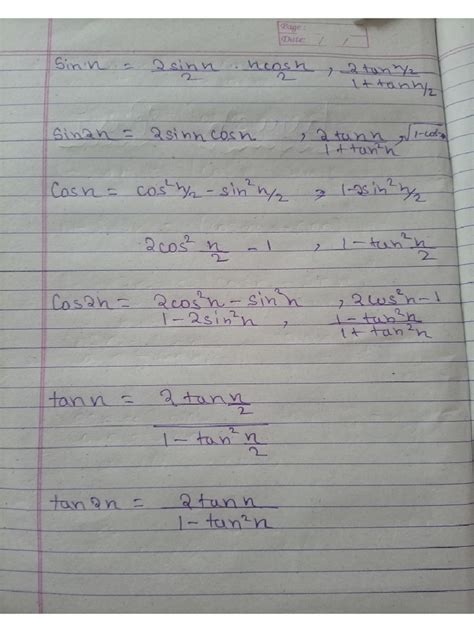 Page:
Date: / /
Sin n = 2 sin n/2 · n cos n/2 , 2 tan n/2 / 1 + tan n/2
Sin2n = 2 sin n cos n , 2 tan n / 1 + tan²n , √1-cos²
Cos n = cos² n/2 - sin² n/2 , 1-2sin² n/2
2cos² n/2 - 1 , 1 - tan² n/2
Cos2n = 2cos²n - sin²n , 2cos²n - 1
1 - 2sin²n , 1 - tan²n / 1 + tan²n
tan n = 2 tan n/2 / 1 - tan² n/2
tan2n = 2 tan n / 1 - tan²n